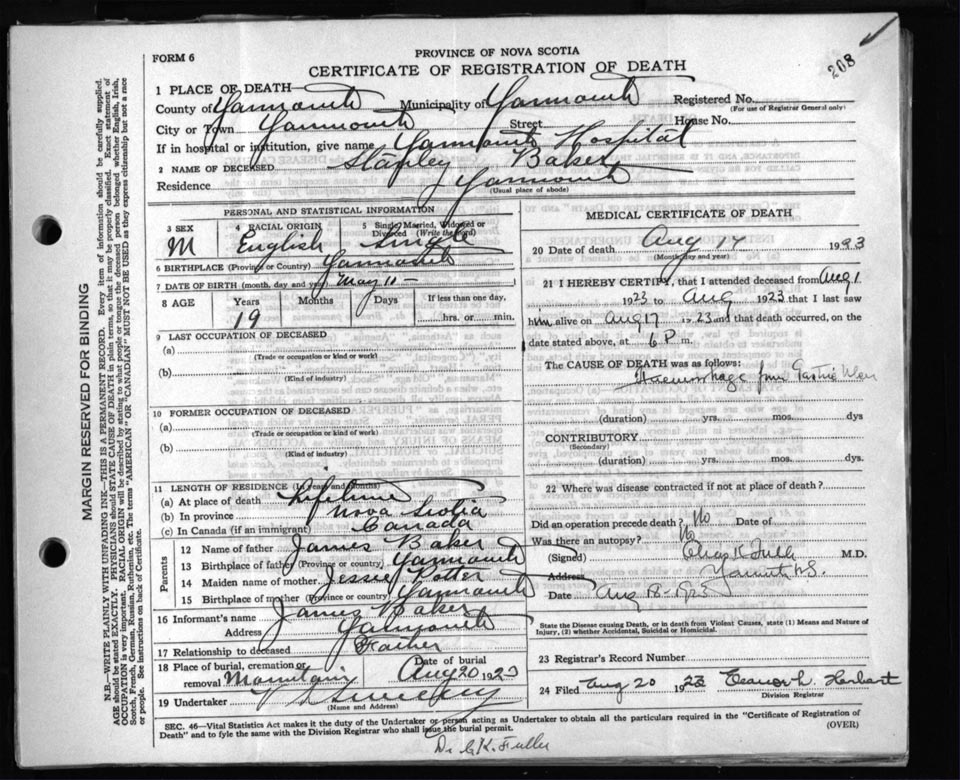 208
FORM 6
PROVINCE OF NOVA SCOTIA
CERTIFICATE OF REGISTRATION OF DEATH
1 PLACE OF DEATH—
County of Yarmouth Municipality of Yarmouth Registered No.
(For use of Registrar General only)
City or Town Yarmouth Street House No.
If in hospital or institution, give name Yarmouth Hospital
2 NAME OF DECEASED Stanley Baker
Residence Yarmouth
(Usual place of abode)
PERSONAL AND STATISTICAL INFORMATION
3 SEX 4 RACIAL ORIGIN 5 Single, Married, Widowed or Divorced (Write the word)
M English Single
6 BIRTHPLACE (Province or Country) Yarmouth
7 DATE OF BIRTH (month, day and year) May 10
8 AGE Years Months Days If less than one day,
19 hrs. or min.
9 LAST OCCUPATION OF DECEASED
(a)
(Trade or occupation or kind or work)
(b)
(Kind of industry)
10 FORMER OCCUPATION OF DECEASED
(a)
(Trade or occupation or kind or work)
(b)
(Kind of industry)
11 LENGTH OF RESIDENCE (In years and months)
(a) At place of death Lifetime
(b) In province Nova Scotia
(c) In Canada (if an immigrant) Canada
Parents
12 Name of father James Baker
13 Birthplace of father (Province or country) Yarmouth
14 Maiden name of mother Jessie Potter
15 Birthplace of mother (Province or country) Yarmouth
16 Informant's name James Baker
Address Yarmouth
17 Relationship to deceased Father
18 Place of burial, cremation or removal Mountain Date of burial Aug 20 1923
19 Undertaker V S Sweeney
(Name and Address)
MEDICAL CERTIFICATE OF DEATH
20 Date of death Aug 17 1923
(Month, day and year)
21 I HEREBY CERTIFY, that I attended deceased from Aug 1
1923 to Aug 1923 that I last saw
him alive on Aug 17 1923 and that death occurred, on
date stated above, at 6 P m.
The CAUSE OF DEATH was as follows:
Haemorrhage from Gastric Ulcer
(duration) yrs. mos. dys
CONTRIBUTORY
(Secondary)
(duration) yrs. mos. dys.
22 Where was disease contracted if not at place of death?
Did an operation precede death? No Date of
Was there an autopsy? No
(Signed) Chas K Fuller M.D.
Address Yarmouth N.S.
Date Aug 18-1923
State the Disease causing Death, or in death from Violent Causes, state (1) Means and Nature of
Injury, (2) whether Accidental, Suicidal or Homicidal.
23 Registrar's Record Number
24 Filed Aug 20 1923 Eleanor L. Herbert
Division Registrar
SEC. 46—Vital Statistics Act makes it the duty of the Undertaker or person acting as Undertaker to obtain all the particulars required in the "Certificate of Registration of
Death" and to fyle the same with the Division Registrar who shall issue the burial permit. (OVER)
Dr C. K. Fuller
MARGIN RESERVED FOR BINDING
N.B.—WRITE PLAINLY WITH UNFADING INK—THIS IS A PERMANENT RECORD. Every item of information should be carefully supplied.
AGE should be stated EXACTLY. PHYSICIANS should STATE CAUSE OF DEATH in plain terms, so that it may be properly classified. Exact statement of
OCCUPATION is very important. RACIAL ORIGIN will be described by stating to what people or tongue the deceased person belonged whether English, Irish,
Scotch, French, German, Russian, Ruthenian, etc. The terms "AMERICAN" OR "CANADIAN" MUST NOT BE USED as they express citizenship but not a race
or people. See instructions on back of Certificate.